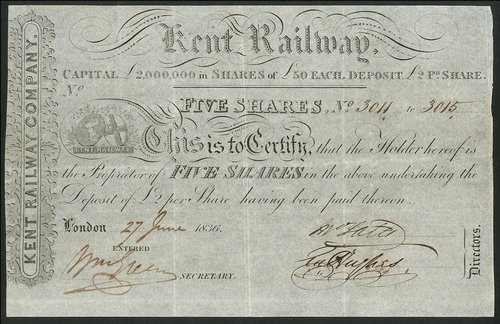 KENT RAILWAY COMPANY.
Kent Railway.
CAPITAL £2,000,000 in SHARES of £50 EACH, DEPOSIT £2 Pr. SHARE.
No
FIVE SHARES, No 3011 to 3015
KENT RAILWAY
This is to Certify, that the Holder hereof is
the Proprietor of FIVE SHARES in the above undertaking the
Deposit of £2 per Share having been paid thereon.
London 27 June 1836.
ENTERED
SECRETARY.
Hughes
Directors.